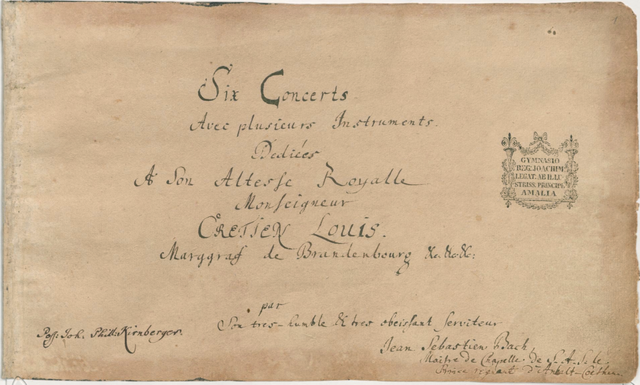 Six Concerts
Avec plusieurs Instruments.
Dediées
A Son Altesse Royalle
Monseigneur
CRETIEN LOUIS.
Marggraf de Brandenbourg &c. &c. &c:
par
Son tres-humble & tres obeissant serviteur
Jean Sebastien Bach,
Maitre de Chapelle de S. A. S. le
Prince regnant d'Anhalt-Coethen.
Poss: Joh. Phil: Kirnberger.
GYMNASIO
REG. IOACHIM
LEGAT. AB ILLU-
STRISS. PRINCIPE
AMALIA